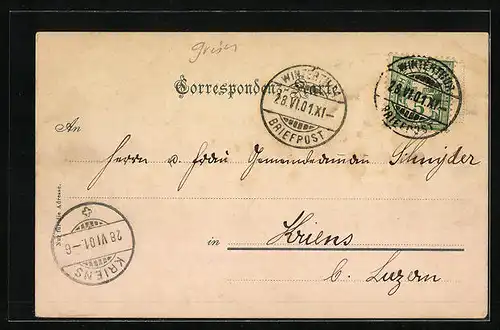 Correspondenz-Karte.
WINTERTHUR
28.VI.01.XI-
BRIEFPOST
WINTERTHUR
28.VI.01.XI-
BRIEFPOST
5
An
Herrn u. Frau Gemeindeammann Schnyder
Nur für die Adresse.
in Kriens
b. Luzern
28.VI.01.-6
KRIENS